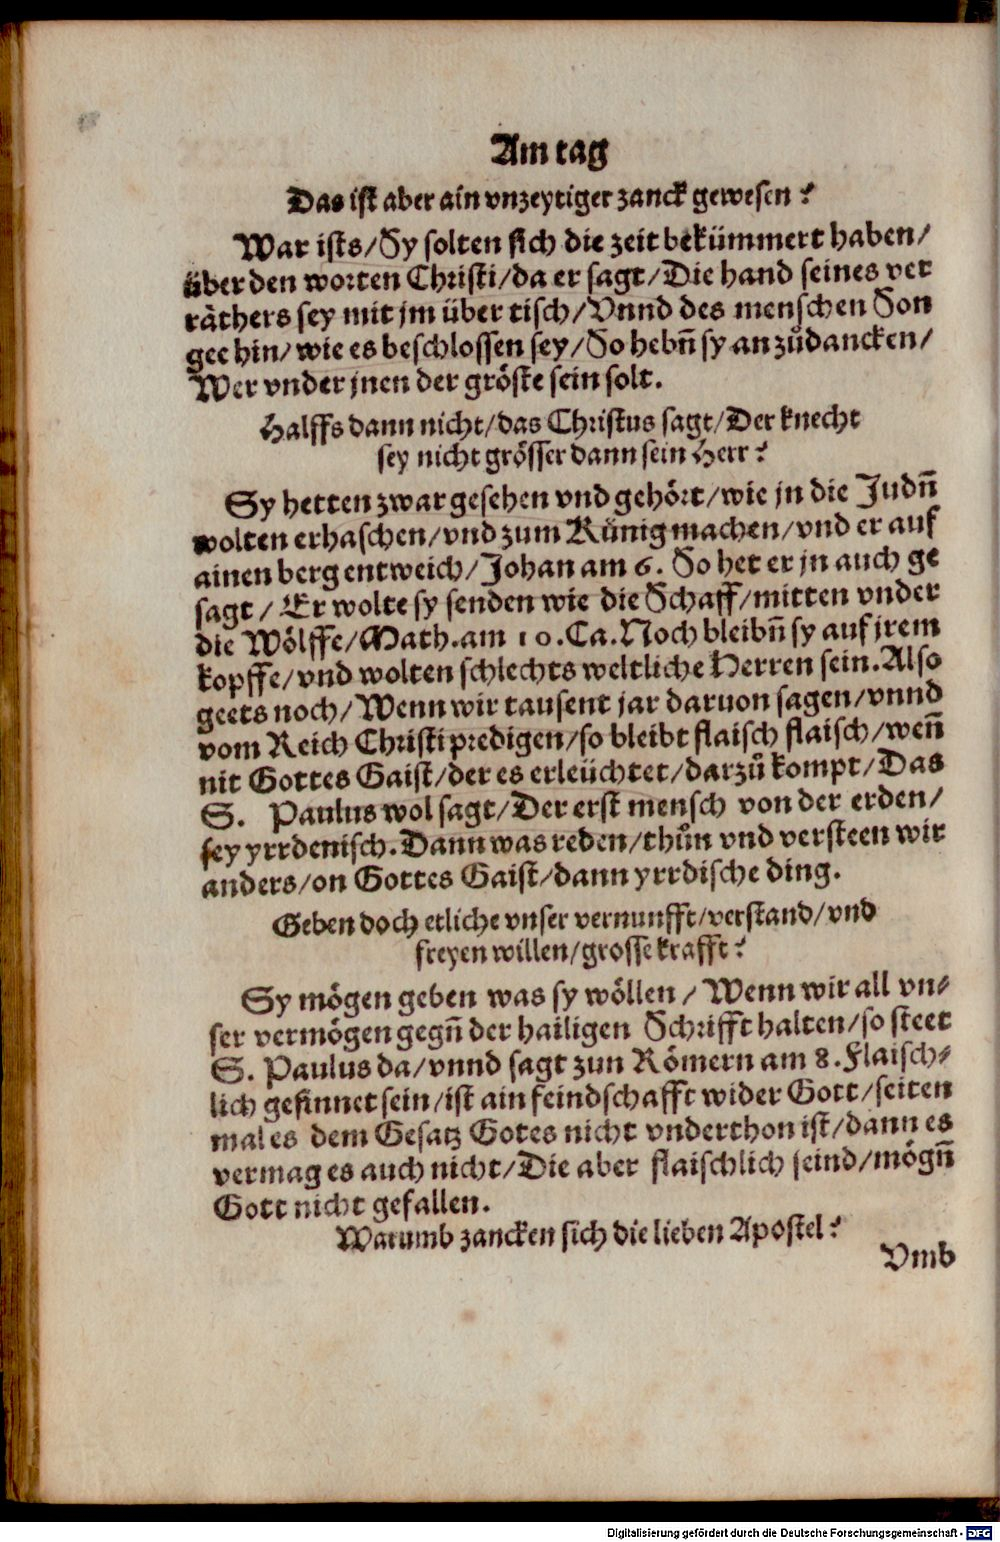 Am tag
Das ist aber ain vnzeytiger zanck gewesen?
War ists/Sy solten sich die zeit bekümmert haben/
über den worten Christi/da er sagt/Die hand seines ver
räthers sey mit jm über tisch/Vnnd des menschen Son
gee hin/wie es beschlossen sey/So hebn̄ sy an zůdancken/
Wer vnder jnen der gröste sein solt.
Halffs dann nicht/das Christus sagt/Der knecht
sey nicht grösser dann sein Herr?
Sy hetten zwar gesehen vnd gehört/wie jn die Judn̄
wolten erhaschen/vnd zum Künig machen/vnd er auf
ainen berg entweich/Johan am 6. So het er jn auch ge
sagt/Er wolte sy senden wie die Schaff/mitten vnder
die Wölffe/Math.am 10.Ca.Noch bleibn̄ sy auf jrem
kopffe/vnd wolten schlechts weltliche Herren sein.Also
geets noch/Wenn wir tausent jar daruon sagen/vnnd
vom Reich Christi predigen/so bleibt flaisch flaisch/wen̄
nit Gottes Gaist/der es erleüchtet/darzů kompt/Das
S. Paulus wol sagt/Der erst mensch von der erden/
sey yrrdenisch.Dann was reden/thůn vnd versteen wir
anders/on Gottes Gaist/dann yrrdische ding.
Geben doch etliche vnser vernunfft/verstand/vnd
freyen willen/grosse krafft?
Sy mögen geben was sy wöllen/Wenn wir all vn-
ser vermögen gegn̄ der hailigen Schrifft halten/so steet
S. Paulus da/vnnd sagt zun Römern am 8.Flaisch-
lich gesinnet sein/ist ain feindschafft wider Gott/seiten
mal es dem Gesatz Gotes nicht vnderthon ist/dann es
vermag es auch nicht/Die aber flaischlich seind/mögn̄
Gott nicht gefallen.
Warumb zancken sich die lieben Apostel?
Vmb
Digitalisierung gefördert durch die Deutsche Forschungsgemeinschaft - DFG